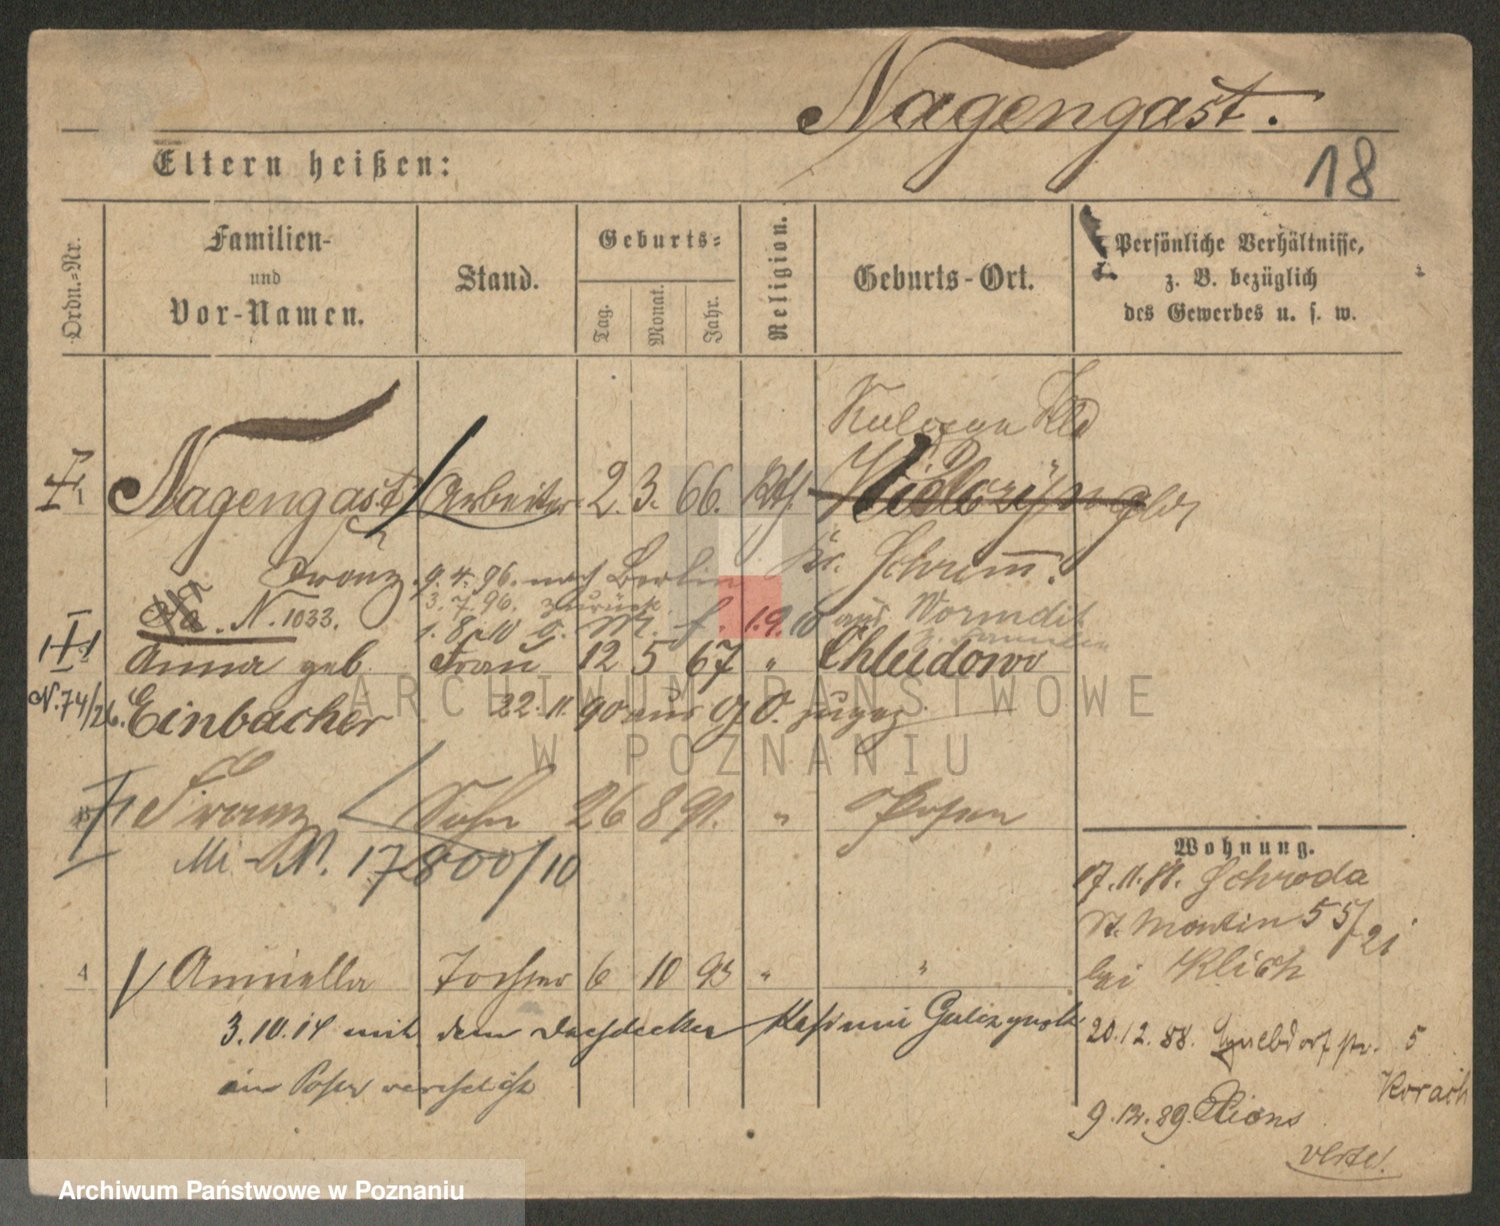 Nagengast.
18
Eltern heißen:
Ordn.-Nr.
Familien-
und
Vor-Namen.
Stand.
Geburts-
Tag.
Monat.
Jahr.
Religion.
Geburts-Ort.
Persönliche Verhältnisse,
z. B. bezüglich
des Gewerbes u. s. w.
1 Nagengast Arbeiter 2. 3. 66. Kth.
Franz. 9.4.96. nach Berlin Kr. Schrimm.
3.7.96. zurück.
N. 1033. 1.9.10 aus
Anna geb. Frau 12 5 67 " Chludowo
N. 74/26. Einbacher 22.11.90 aus zugez.
3 Franz Sohn 26 8 91. " Posen
Mi-N. 17800/10
4 Anniella Tochter 6 10 93 " "
3.10.14 mit dem Dachdecker Kasimir
aus Posen verehelicht
Wohnung.
17.11.88. Schroda
St. Martin 55/21
bei Klich
20.12.88. 5
Korach
9.12.89.
ARCHIWUM PAŃSTWOWE
W POZNANIU
Archiwum Państwowe w Poznaniu